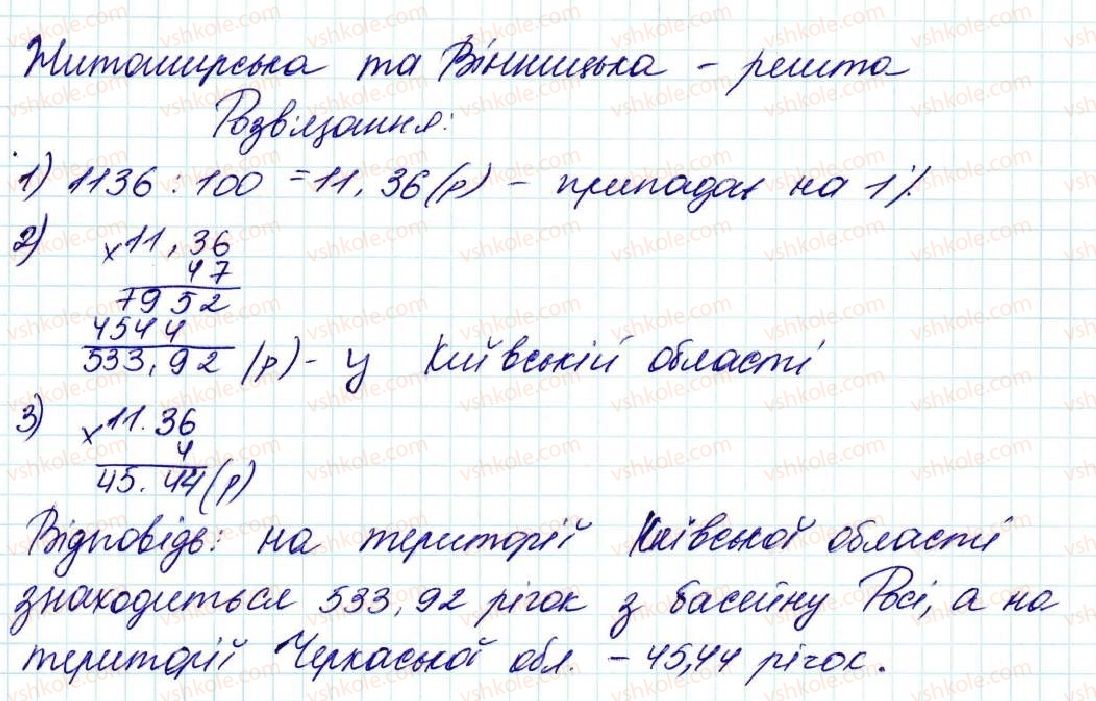 Житомирська та Вінницька - решта
Розв'язання:
1) 1136 : 100 = 11,36 (р) - припадає на 1%
2) x 11,36
47
7952
4544
533,92 (р) - у Київській області
3) x 11.36
4
45.44 (р)
Відповідь: на території Київської області
знаходиться 533,92 річок з басейну Росі, а на
території Черкаської обл. - 45,44 річок.